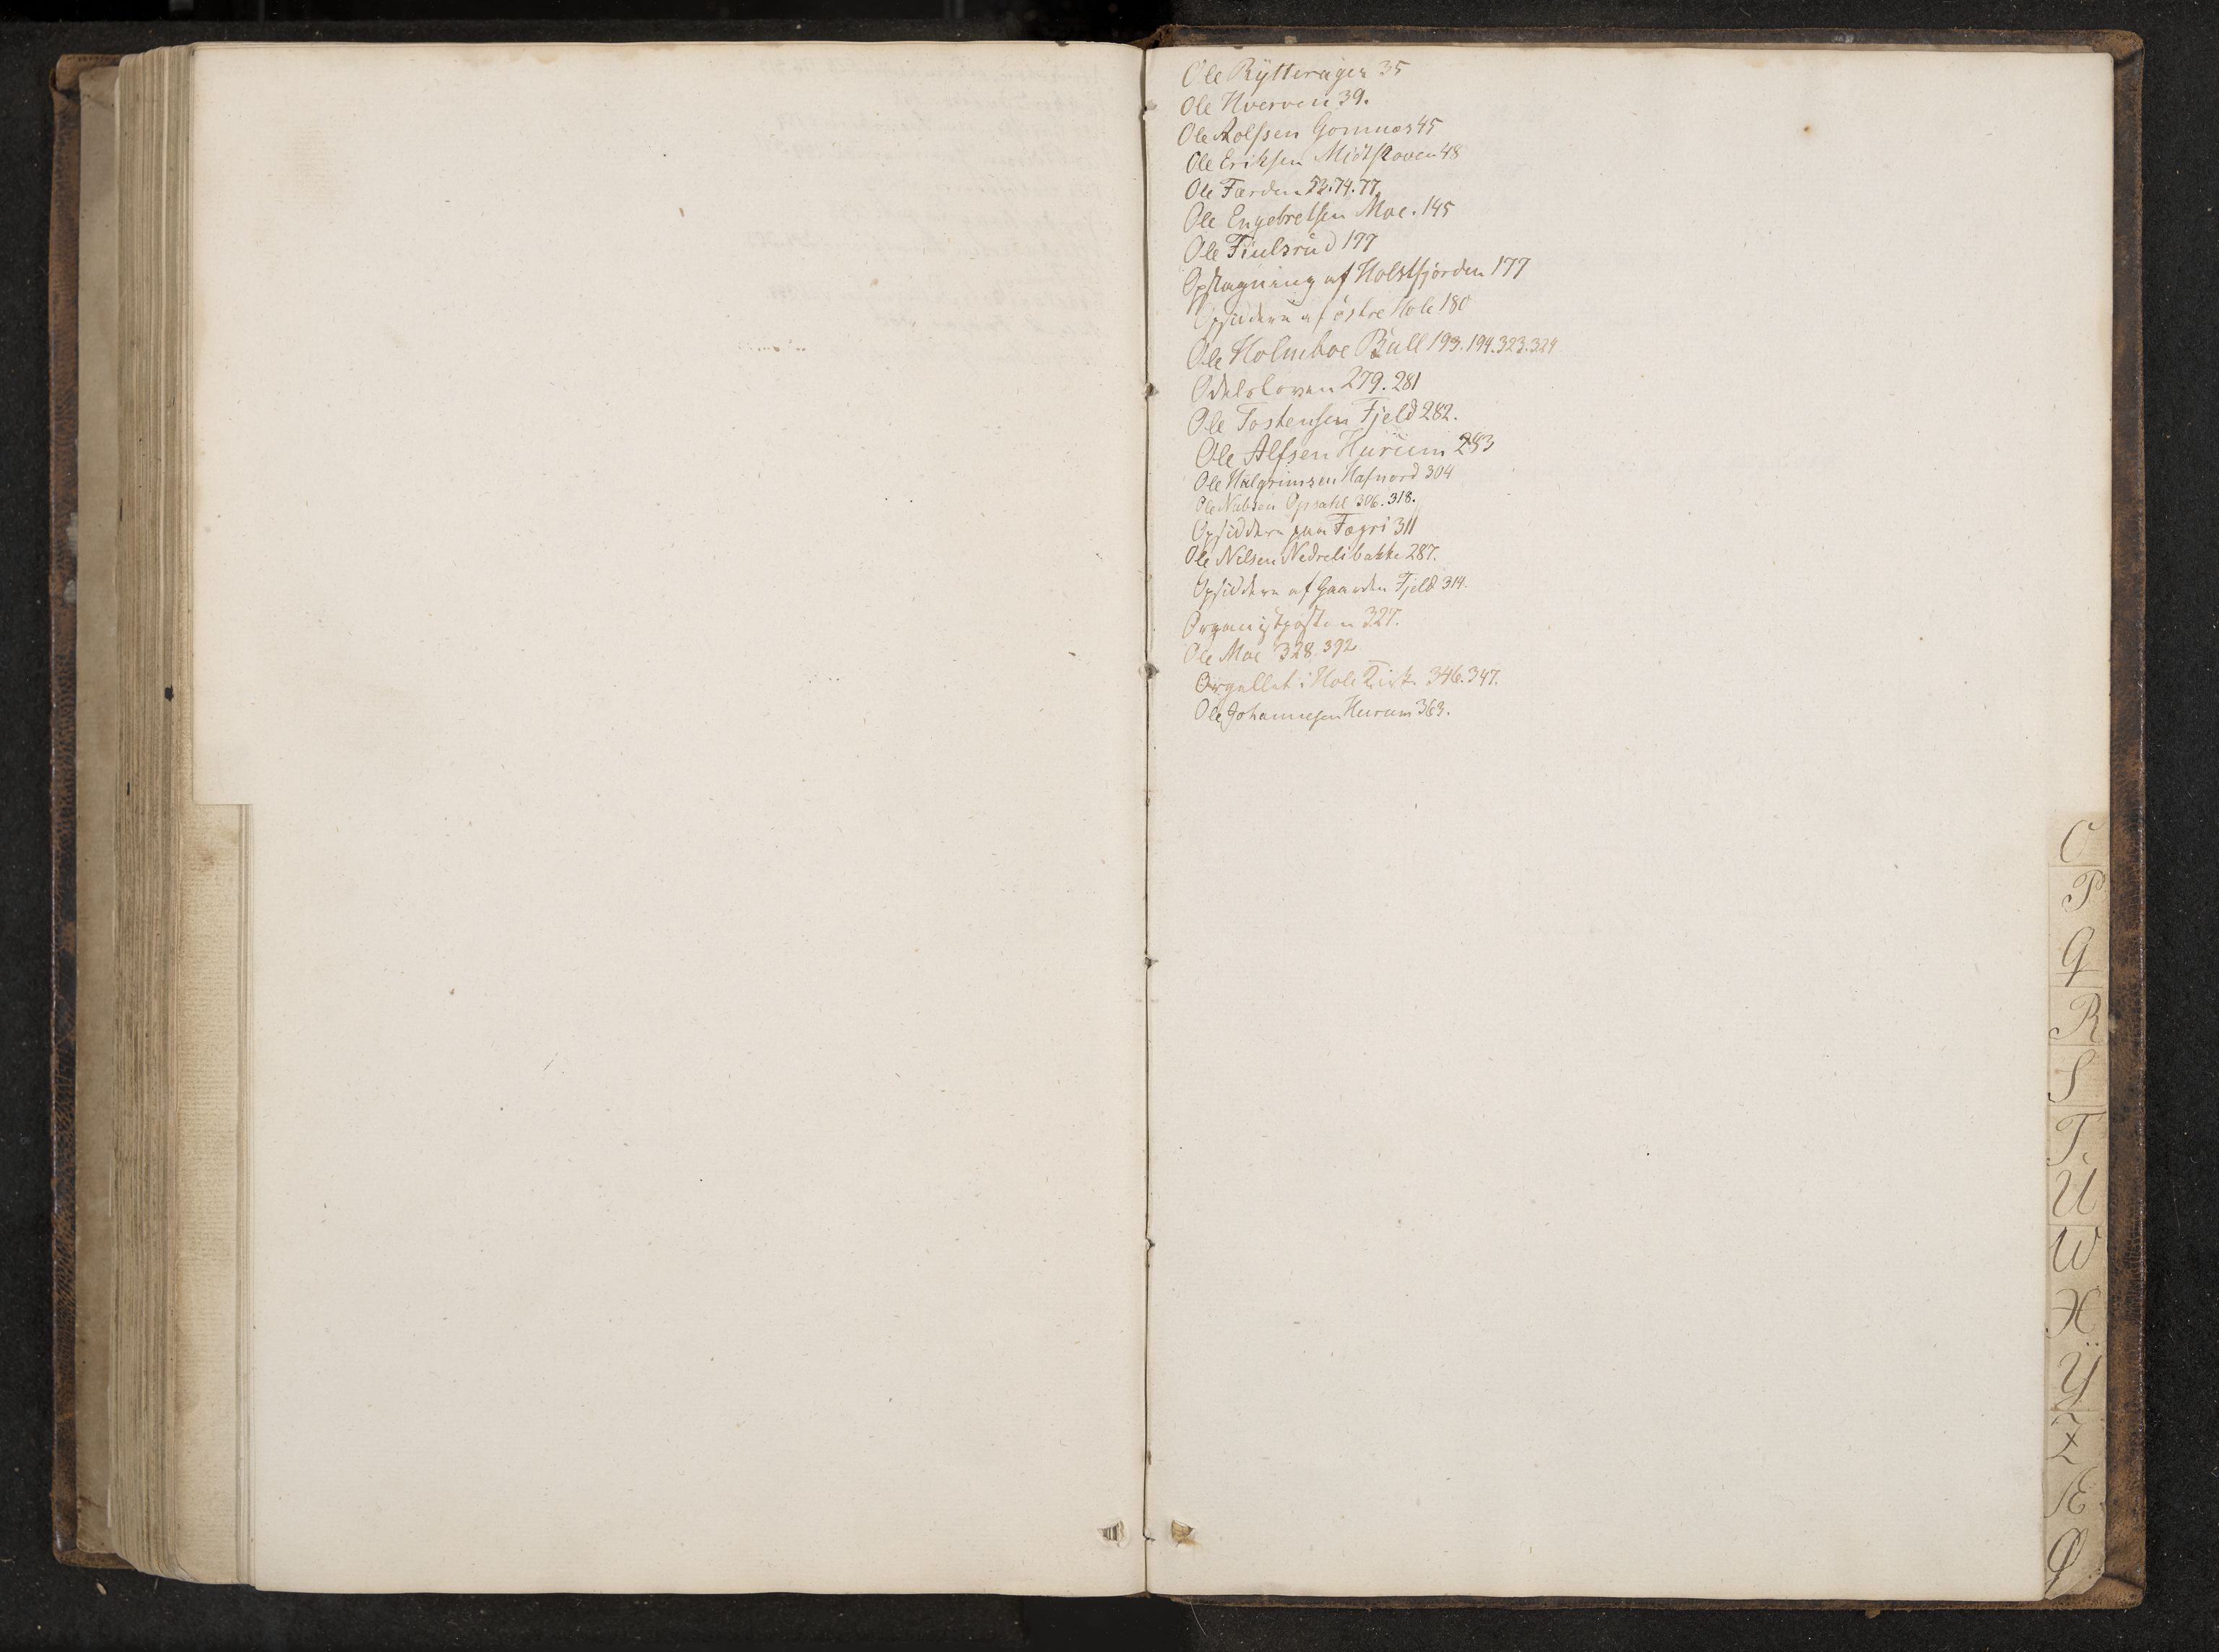 Ole Rytterager 35
Ole Hverven 39.
Ole Rolfsen Gomnæs 45
Ole Eriksen Midtskoven 48
Ole Færden 52.74.77.
Ole Engebretsen Moe. 145
Ole Fiulsrud 177
Optagning af Holsfjorden 177
Opsiddere af østre Hole 180
Ole Holmboe Bull 193.194.323.324
Odelsloven 279.281
Ole Tostensen Fjeld 282.
Ole Alfsen Hurum 283
Ole Halgrimsen Hafnord 304
Ole Nubsen Opsahl 306.318.
Opsiddere paa Fægri 311
Ole Nilsen Nedrelibakke 287.
Opsiddere af Gaarden Fjeld 314.
Organistposten 327.
Ole Moe 328.392
Orgellet i Hole Kirke 346.347.
Ole Johannesen Hurum 363.
O
P
Q
R
S
T
U
W
X
Ÿ
Z
Æ
Ø